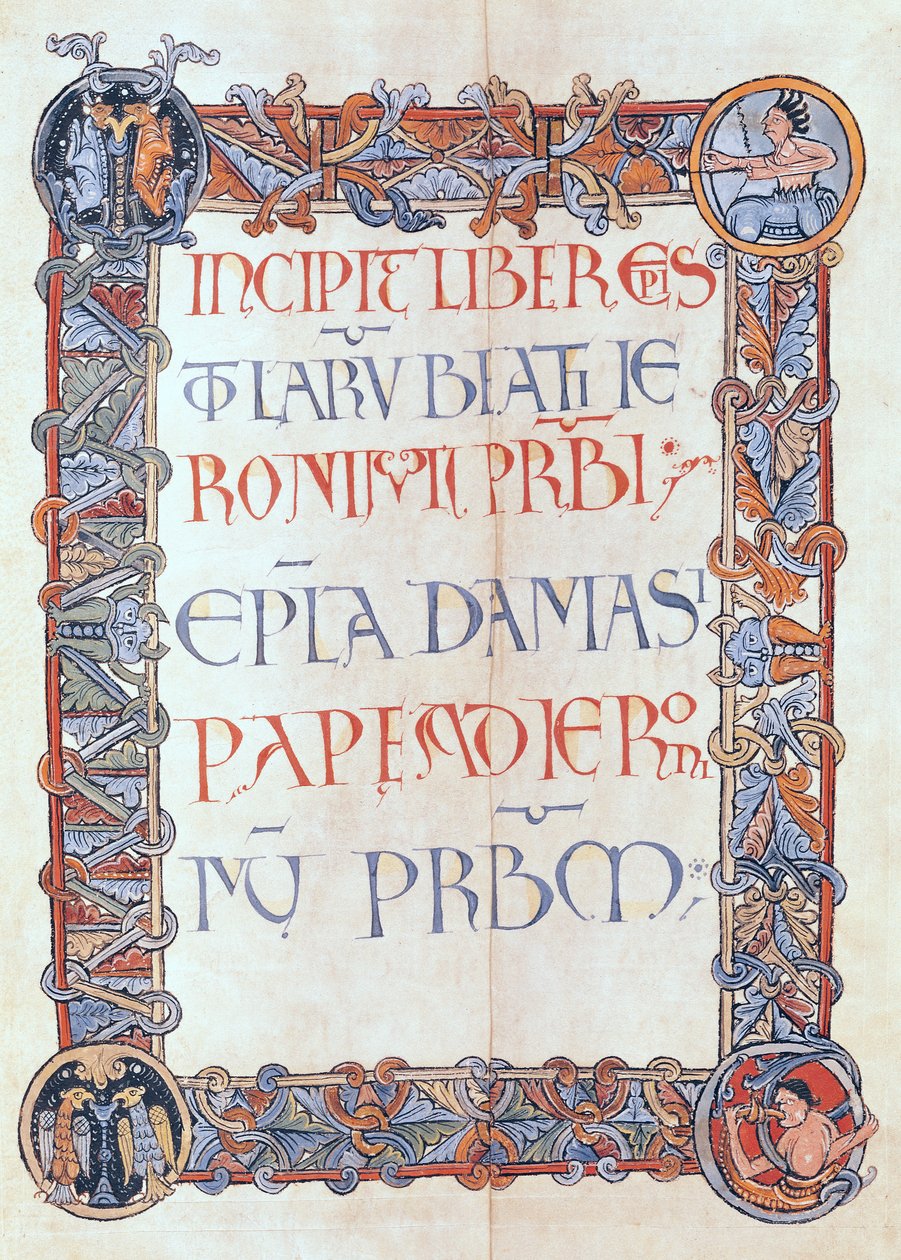 INCIPIT LIBER EPIS
TLARV̄ BEATI IE
RONIMI PR̄BI
EP̄LA DAMASI
PAPĘ AD IERONI
MŪ PRB̄M